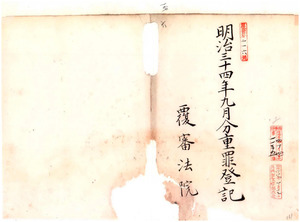 明治三十四年九月分重罪登記
覆審法院